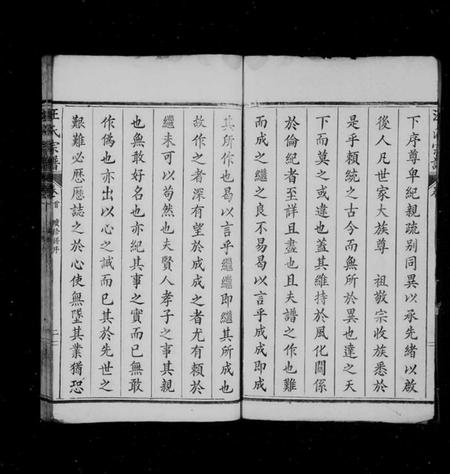 下序尊卑紀親疏別同異以承先緒以啟
後人凡世家大族尊　祖敬宗收族悉於
是乎賴統之古今而無所於異也達之天
下而莫之或違也蓋其維持於風化關係
於倫紀者至詳且盡也且夫譜之作也難
而成之繼之良不易曷以言乎成成即成
其所作也曷以言乎繼繼即繼其所成也
故作之者深有望於成成之者尤有賴於
繼未可以苟然也夫賢人孝子之事其親
也無敢好名也亦紀其事之實而已無敢
作偽也亦出以心之誠而已其於先世之
艱難必歷歷誌之於心使無墜其業猶恐
汪氏宗譜 卷首 續修譜序 二